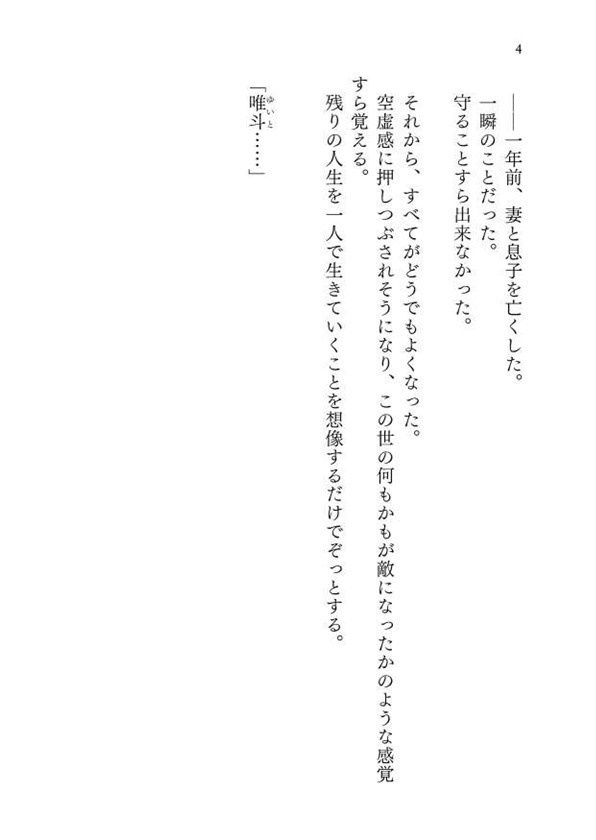 4
――一年前、妻と息子を亡くした。
一瞬のことだった。
守ることすら出来なかった。
それから、すべてがどうでもよくなった。
空虚感に押しつぶされそうになり、この世の何もかもが敵になったかのような感覚
すら覚える。
残りの人生を一人で生きていくことを想像するだけでぞっとする。
「唯斗……」
ゆいと